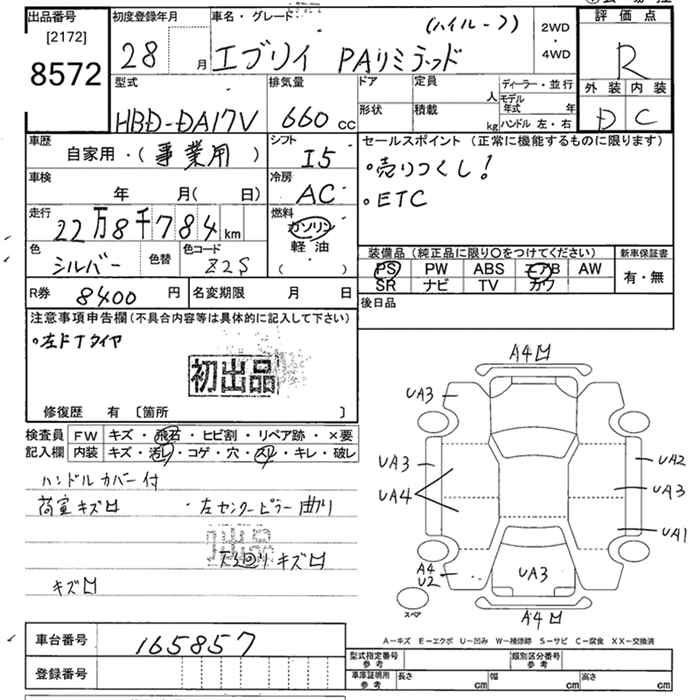 出品番号
[2172]
8572
初度登録年月
28 月
車名・グレード
(ハイルーフ)
エブリイ PAリミテッド
2WD
・
4WD
評価点
R
外装 内装
D C
型式
HBD-DA17V
排気量
660 cc
ドア
形状
定員 人
積載 kg
ディーラー・並行
モデル年式 年
ハンドル 左・右
車歴
自家用・(事業用)
シフト
I5
セールスポイント (正常に機能するものに限ります)
・売りつくし!
・ETC
車検
年 月( 日)
冷房
AC
走行
22万8千784km
燃料
ガソリン
軽油
( )
色
シルバー
色替
色コード
Z2S
装備品(純正品に限り〇をつけてください)
PS PW ABS エアB AW
SR ナビ TV カワ
新車保証書
有・無
R券 8400 円
名変期限 月 日
後日品
注意事項申告欄(不具合内容等は具体的に記入して下さい)
・左FTタイヤ
初出品
修復歴 有 [箇所 ]
検査員記入欄
FW キズ・飛石・ヒビ割・リペア跡・×要
内装 キズ・汚レ・コゲ・穴・スレ・キレ・破レ
ハンドルカバー付
荷室キズ凹 ・左センターピラー曲り
キズ凹
キズ凹
A4凹
UA3
UA3
UA4
UA2
UA3
UA1
A4
U2
UA3
A4凹
スペア
A-キズ E-エクボ U-凹み W-補修跡 S-サビ C-腐食 XX-交換済
車台番号
165857
登録番号
型式指定番号
参考
類別区分番号
参考
車庫証明用
参考
長さ cm
幅 cm
高さ cm